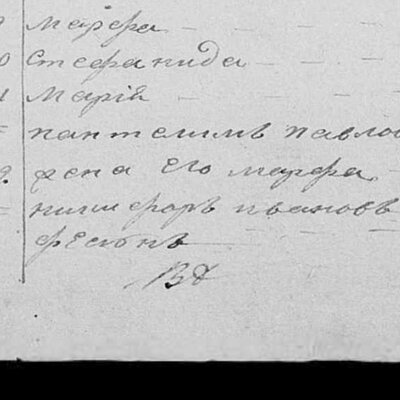 марѳа
Стефанида
Марія
пантелимъ павло
жена его марфа
никифоръ ивановъ